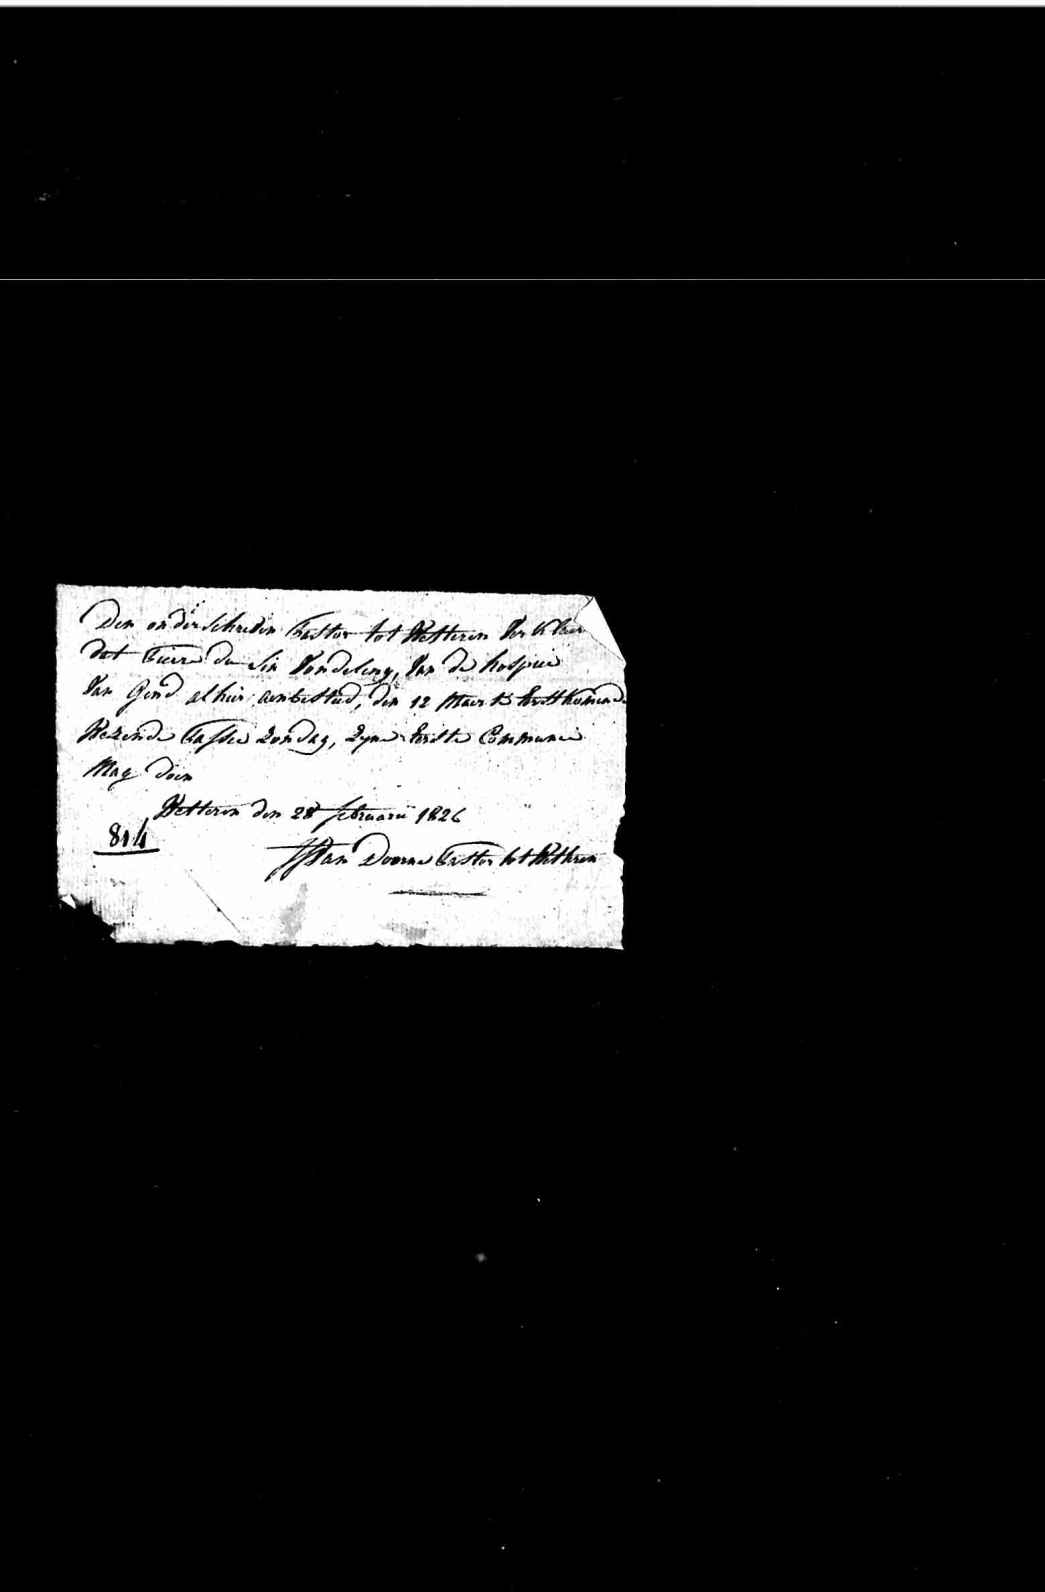 Den onderschreden Pastor tot Wetteren Verklaer
dat Pierre de Vondeling, Van de hospice
Van Gend alhier aenbested, den 12 Maerte
Wezende Passie Zondag, Zyne Eerste Communie
Mag doen
Wetteren den 28 februarii 1826
814
Van Doorne Pastor tot Wetteren